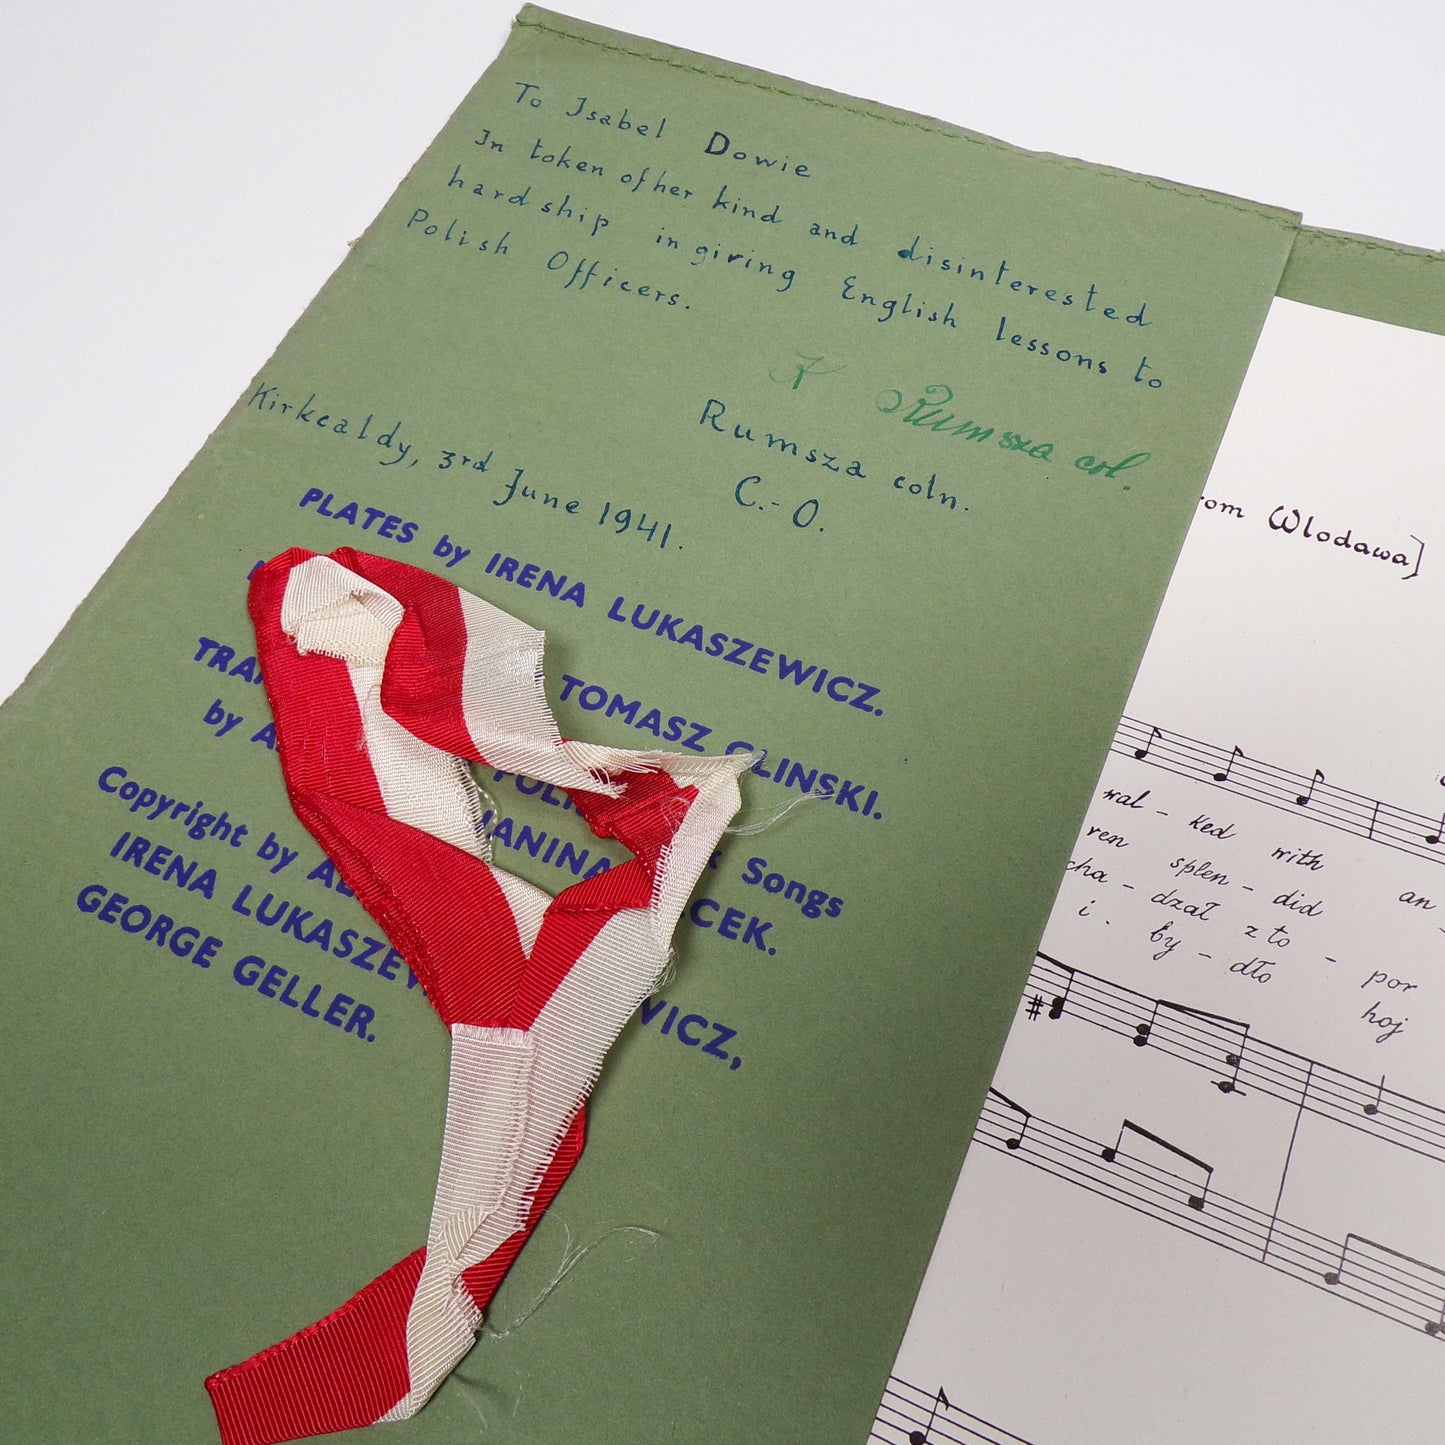 To Isabel Dowie
In token of her kind and disinterested
hardship in giving English lessons to
Polish Officers.
Rumsza col.
Rumsza coln.
C.-O.
Kirkcaldy, 3rd June 1941.
PLATES by IRENA LUKASZEWICZ.
TOMASZ GLINSKI.
Songs
by
JANINA
Copyright by
IRENA LUKASZEWICZ,
GEORGE GELLER.
Wlodawa]
wal - ked with an
ren splen - did
cha - dzał z to - por
i by - dło hoj